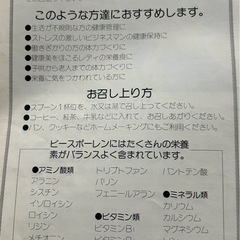 このような方達におすすめします。
●生活が不規則な方の健康管理に
●ストレスの激しいビジネスマンの健康保持に
●働きざかりの方の体力づくりに
●健康美をほこるレディの栄養食に
●子供から老人までの体力づくりに
●栄養に気をつかわれている方に
お召し上り方
●スプーン1杯位を、水又は湯で召し上ってください。
●コーヒー、紅茶、牛乳などに入れて、お召しあがりください。
●パン、クッキーなどホームメーキングにもご利用できます。
ビースポーレンにはたくさんの栄養
素がバランスよく含まれています。
●アミノ酸類
アラニン
シスチン
イソロイシン
ロイシン
リジン
トリプトファン
バリン
フェニールアラニン
●ビタミン類
ビタミンB₁
パントテン酸
●ミネラル類
カリウム
カルシウム
マグネシウム